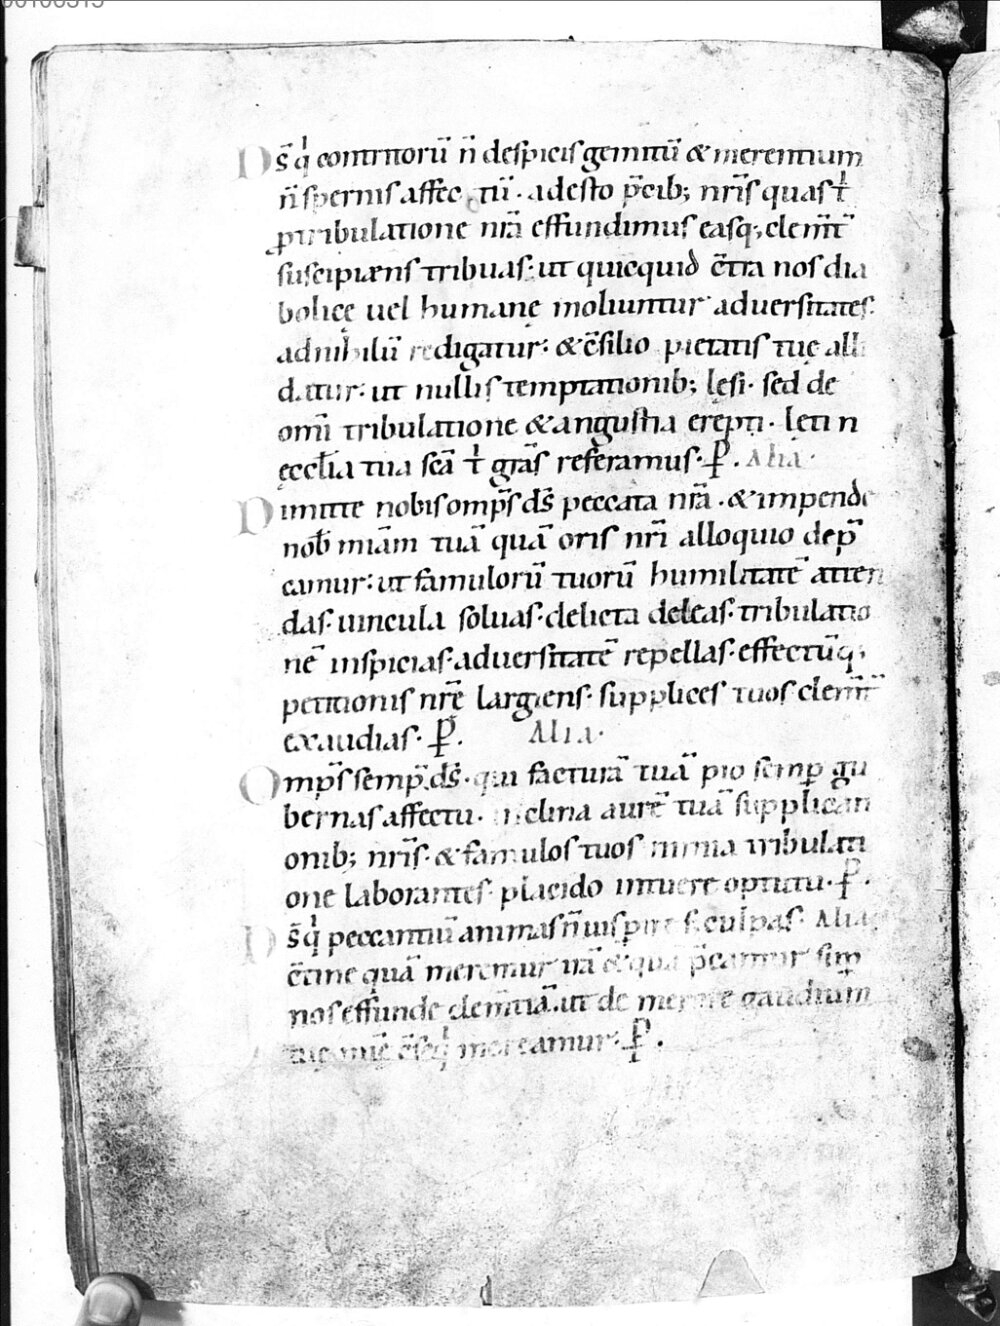 Ds̄ qͥ contritorū n̄ despicis gemitū & merentium
n̄ spernis affec tū · adesto p̄cib; nr̄is quas tͥ
ꝓ tribulatione nr̄a effundimus easq; clem̄t̄
suscipiæns tribuas · ut quicquid c̄tra nos dia
bolicę uel humanę moliuntur aduersitates ·
ad nihilū redigatur : & c̄silio pietatis tuę alli
datur · ut nullis temptationib; lęsi · sed de
om̄i tribulatione & angustia erepti · lęti n
ęccl̄ia tua sc̄ā tͥ gr̄as referamus · P̄ . Alia ·
Dimitte nobis omp̄s ds̄ peccata nr̄a · & impende
nob̄ mīam tuā quā oris nr̄i alloquio dep̄
camur : ut famulorū tuorū humilitatē atten
das · uincula soluas · delicta deleas · tribulatio
nē inspicias · aduersitatē repellas · effectūq;
petitionis nr̄ę largiens · supplices tuos clem̄t̄
exaudias · P̄ . Alia ·
Omp̄s semp̄ ds̄ · qui facturā tuā pio semp̄ gu
bernas affectu · inclina aurē tuā supplicati
onib; nr̄is · & famulos tuos nimia tribulati
one laborantes · placido intuere optutu · P̄ .
Ds̄ qͥ peccantiū animas n̄ uis ꝑire s; culpas · Alia
c̄tine quā meremur irā & quā p̄camur sup̄
nos effunde clem̄tiā · ut de merore gaudium
tuę mīę c̄seqͥ mereamur · P̄ .